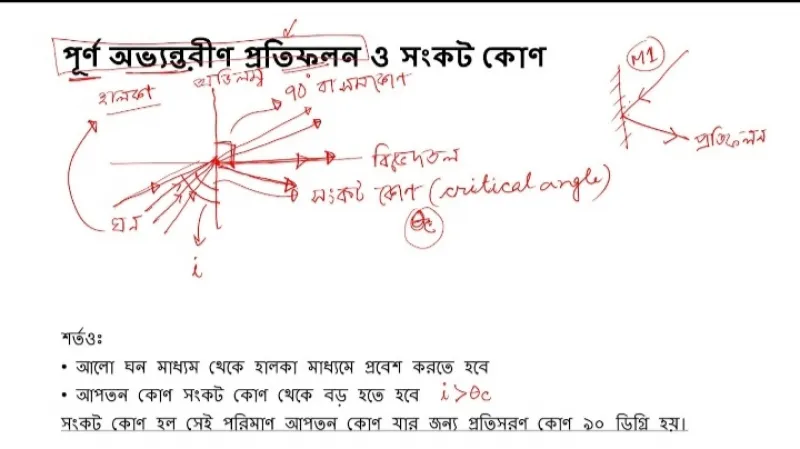 পূর্ণ অভ্যন্তরীণ প্রতিফলন ও সংকট কোণ
M1
হালকা
অভিলম্ব
90° বা সমকোণ
প্রতিফলন
বিভেদতল
সংকট কোণ (critical angle)
θc
ঘন
i
শর্তওঃ
• আলো ঘন মাধ্যম থেকে হালকা মাধ্যমে প্রবেশ করতে হবে
• আপতন কোণ সংকট কোণ থেকে বড় হতে হবে i>θc
সংকট কোণ হল সেই পরিমাণ আপতন কোণ যার জন্য প্রতিসরণ কোণ ৯০ ডিগ্রি হয়।